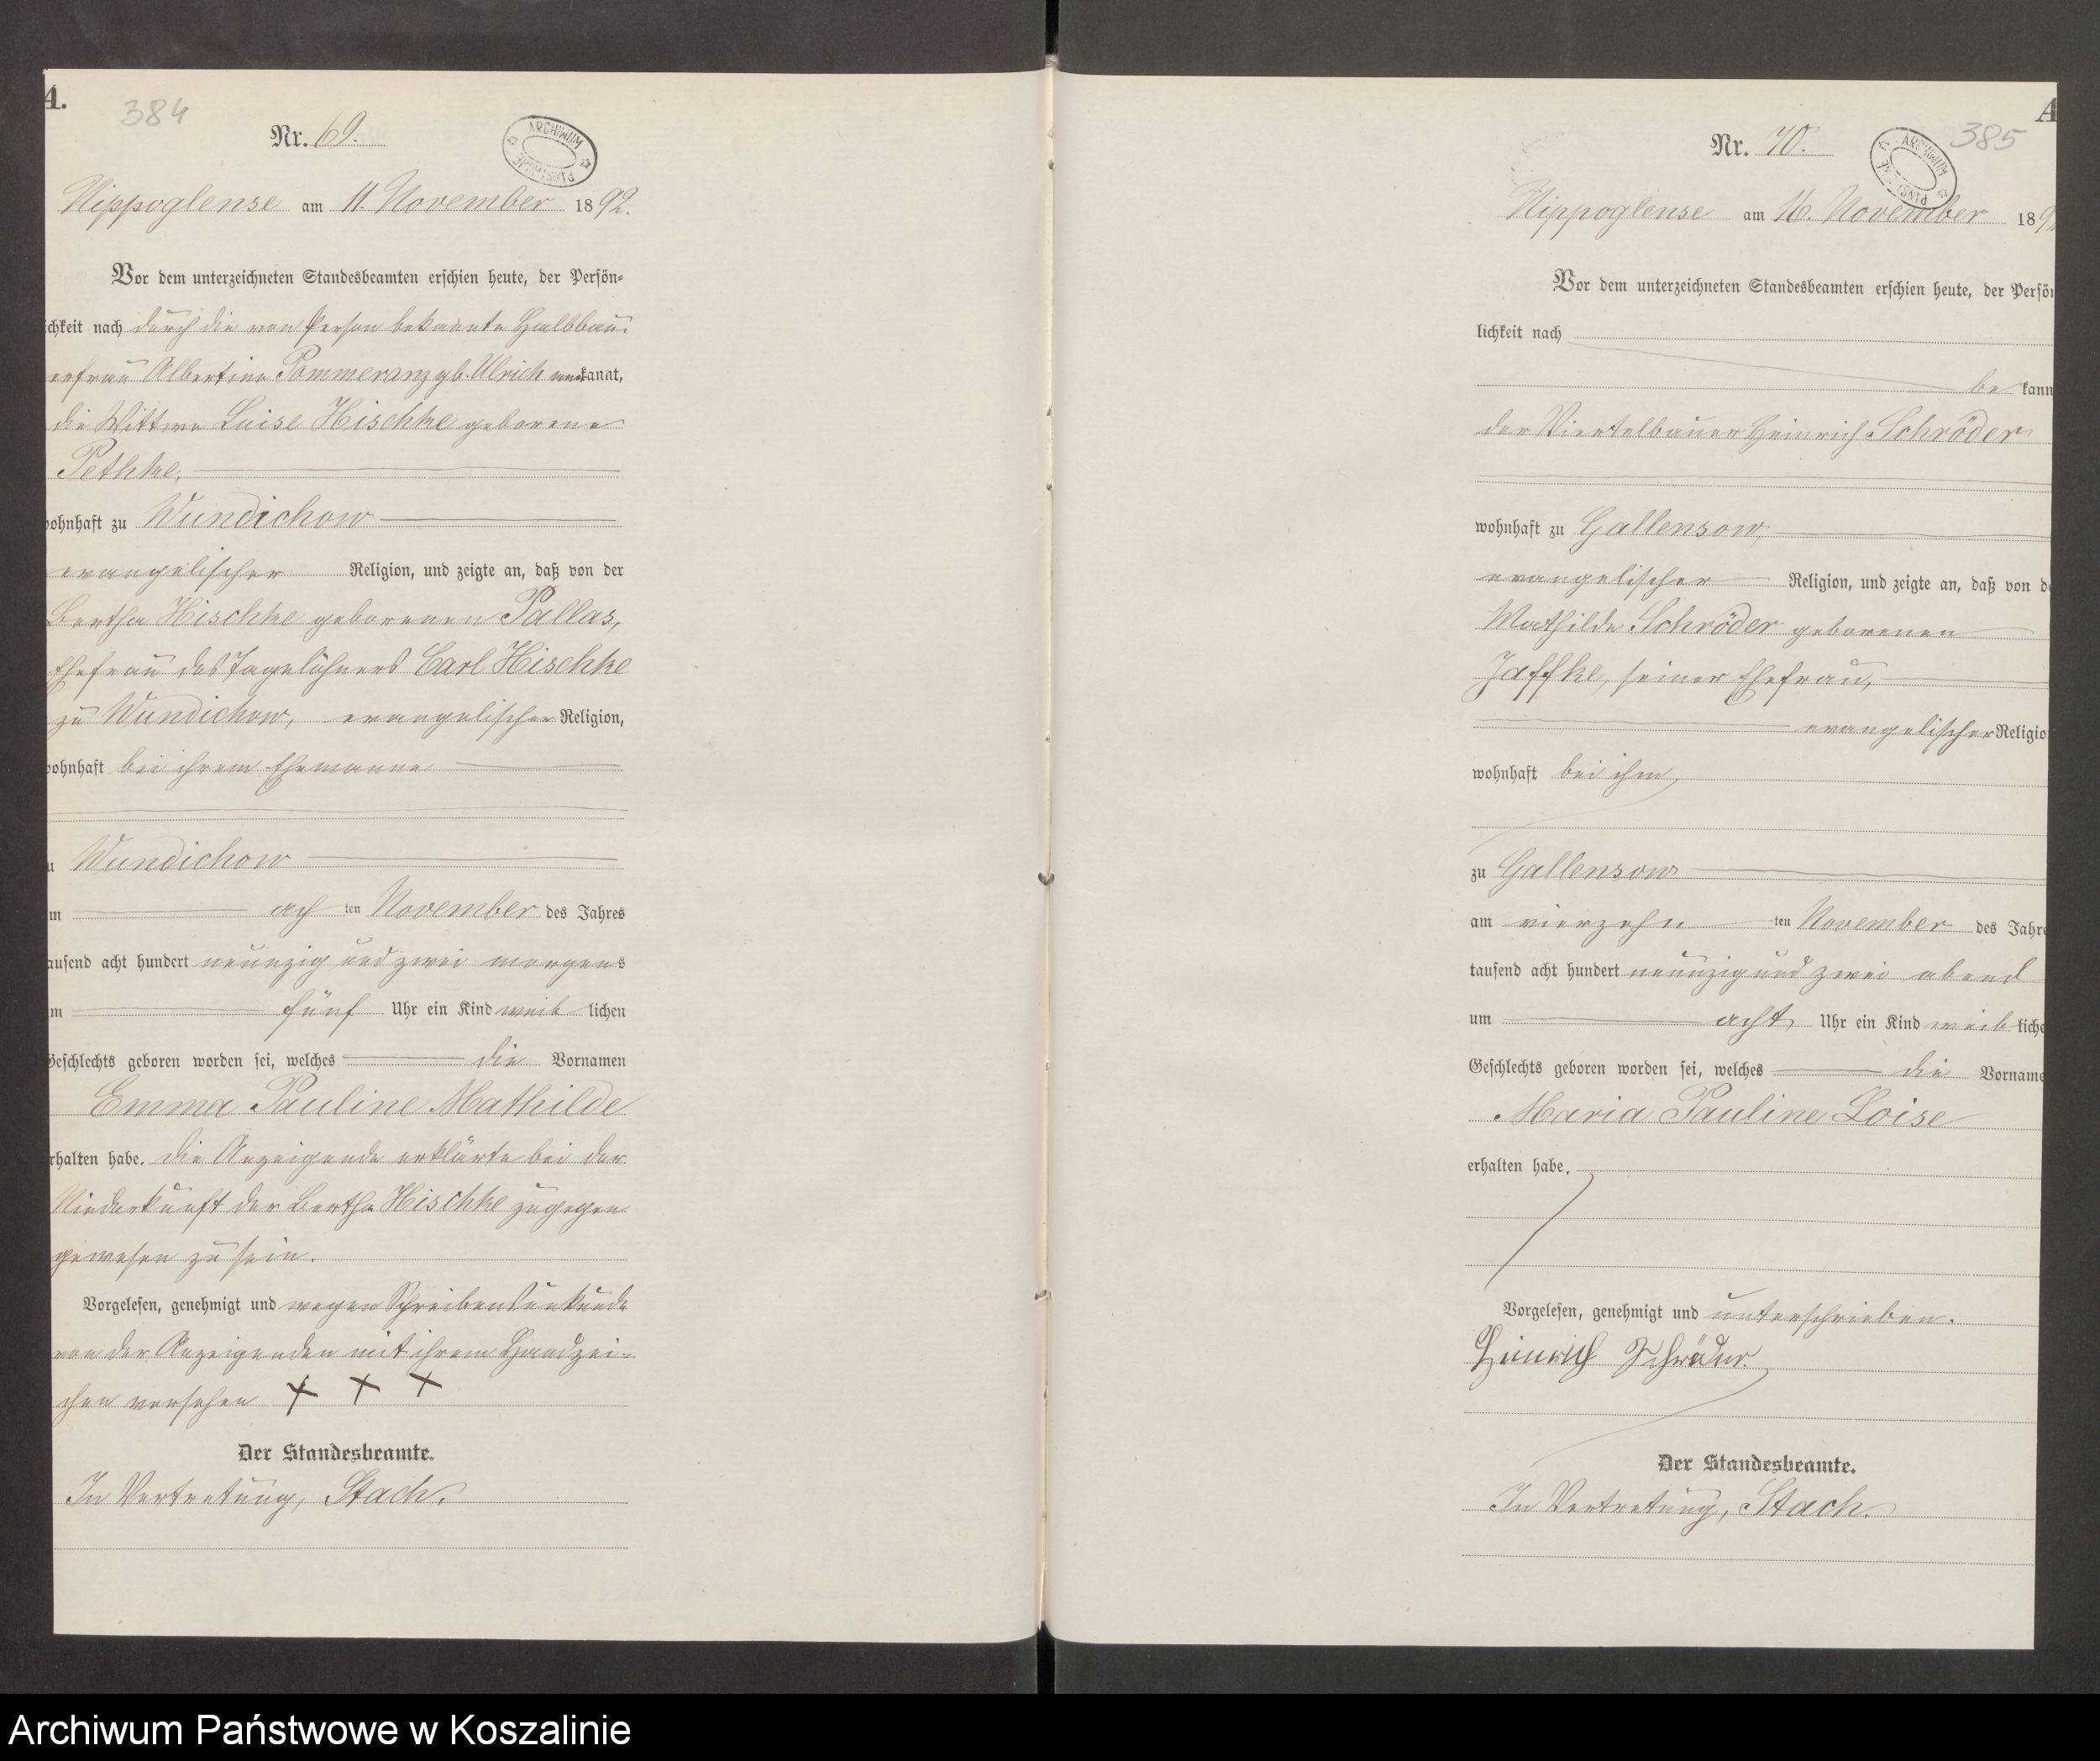 A.
384
Nr. 69.
ARCHIWUM PAŃSTWOWE
Nippoglense am 11. November 1892.
Vor dem unterzeichneten Standesbeamten erschien heute, der Persön-
chkeit nach durch die von Person bekannte Halbbau-
erfrau Albertine Pommeranz gb. Ulrich kannt,
die Wittwe Luise Hischke geborene
Pethke,
wohnhaft zu Wundichow
evangelischer Religion, und zeigte an, daß von der
Bertha Hischke geborenen Pallas,
Ehefrau des Tagelöhners Carl Hischke
zu Wundichow, evangelischer Religion,
wohnhaft bei ihrem Ehemanne
u Wundichow
m ach ten November des Jahres
ausend acht hundert neunzig und zwei morgens
m fünf Uhr ein Kind weib lichen
Geschlechts geboren worden sei, welches die Vornamen
Emma Pauline Mathilde
rhalten habe. Die Anzeigende erklärte bei der
Niederkunft der Bertha Hischke zugegen
gewesen zu sein.
Vorgelesen, genehmigt und wegen Schreibensunkunde
von der Anzeigenden mit ihrem Handzei-
chen versehen + + +
Der Standesbeamte.
In Vertretung, Stach.
A
385
Nr. 70.
ARCHIWUM PAŃSTWOWE
Nippoglense am 16. November 189
Vor dem unterzeichneten Standesbeamten erschien heute, der Persön
lichkeit nach
be kann
der Viertelbauer Heinrich Schröder
wohnhaft zu Gallensow,
evangelischer Religion, und zeigte an, daß von de
Mathilde Schröder geborenen
Jaffke, seiner Ehefrau,
evangelischer Religio
wohnhaft bei ihm,
zu Gallensow
am vierzehn ten November des Jahre
tausend acht hundert neunzig und zwei abend
um acht Uhr ein Kind weib liche
Geschlechts geboren worden sei, welches die Vorname
Maria Pauline Loise
erhalten habe.
Vorgelesen, genehmigt und unterschrieben.
Heinrich Schröder.
Der Standesbeamte.
In Vertretung, Stach.
Archiwum Państwowe w Koszalinie